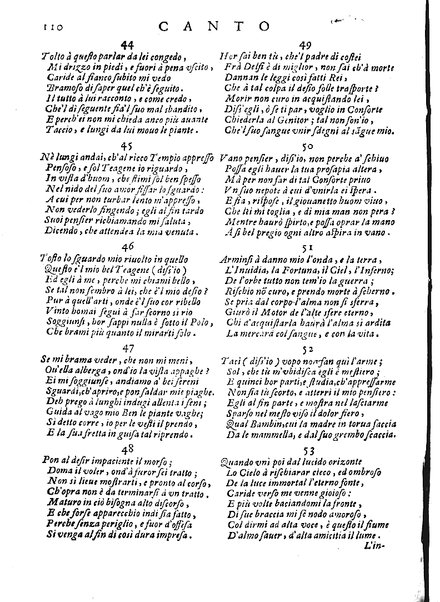 110 CANTO
44
Tolto à questo parlar da lei congedo,
Mi drizzo in piedi, e fuori à pena uscito,
Caride al fianco subito mi vedo
Bramoso di saper quel ch'è seguito.
Il tutto à lui racconto, e come credo,
Che'l di seguente sia'l suo mal sbandito,
E perch'ei non mi chieda anco più auante
Taccio, e lungi da lui mouo le piante.
45
Nè lungi andai, ch'al ricco Tempio appresso
Pensoso, e sol Teagene io riguardo,
In vista d'huom, che stimi sol ben spesso
Nel nido del suo amor fissar lo sguardo:
A cui per non turbar lento m'appresso,
Non vederlo fingendo; egli al fin tardo
Suoi pensier richiamando mi saluta,
Dicendo, che attendea la mia venuta.
46
Tosto lo sguardo mio riuolto in quello
Questo è'l mio bel Teagene (diss'io)
Ed egli à me, perche mi chiami bello,
Se tal non sembro à lei, che è'l desir mio?
Pur à quell'arti, onde è'l suo cor ribello
Vinto homai seguì à farse orno si rio
Soggiunsi, hor sappi nulla è sotto il Polo,
Che brami più quanto il mirarti solo.
47
Se mi brama veder, che non mi meni,
Ou'ella alberga, ond'io la vista appaghe?
Ei mi soggiunse, andiamo à' bei sereni
Sguardi, ch'aprirop, e pon saldar mie piaghe.
Deh prego à lunghi indugi allenta i seni;
Guida al vago mio Ben le piante vaghe;
Sì detto corre, io per le vesti il prendo,
E la sua fretta in guisa tal riprendo.
48
Pon al desir impaciente il morso;
Doma il voler, ond'à furor sei tratto;
Non si lieue mostrarti, e pronto al corso,
Ch'opra non è da terminarsi à vn tratto.
Maturo in ciò bisogna alto discorso,
E che forse apparecchio indi sia fatto,
Perche senza periglio, e fuor d'offesa
Si venga al fin di così dura impresa.
49
Hor sai ben tù, che'l padre di costei
Frà Delfi è di miglior, non sai ch'à morte
Dannan le leggi così fatti Rei,
Che à tal colpa il desìo folle trasporte?
Morir non curo in acquistando lei,
(Diss'egli) e dopò se ti par, voglio in Consorte
Chiederla al Genitor; tal non son'io,
Che'l suo sangue vnir sdegni al sãgue mio.
50
Vano pensier, diss'io, non perche à schiuo
Possa egli hauer la tua prosapia altera,
Mà per non far di tal Consorte priuo
Vn suo nepote à cui d'vnirla ei spera.
E sia, rispose, il giouanetto huom viuo,
Che lei mi toglia, e di mia man non pera?
Mentre haurò spirto, e possa oprar la mano
Asì bel pregio ogni altro aspira in vano.
51
Arminsi à danno mio l'onda, e la terra,
L'Inuidia, la Fortuna, il Ciel, l'Inferno;
De l'orbe tutto non tem'io la guerra;
Rischio nõ curo, e prendo morte à scherno.
Se pria dal corpo l'alma non si sferra,
Giurò il Motor de l'alte sfere eterno,
Chi d'acquistarla haurà l'alma si ardita
La mercarà col sangue, e con la vita.
52
Taci (diss'io) vopo non san quì l'arme;
Sol, che tù m'vbidisca egli è mestiero;
E quinci hor parti, e studia, ch'appressarme
Non sia tù scorto, e atterri il mio pensiero:
Egli al fin parte, e mostra nel lasciarme
Sparso nel mesto viso il dolor fiero,
Qual Bambin, cui la madre in torua faccia
Da le mammella, e dal suo grembo scaccia.
53
Quando vnì poi dal lucido orizonte
Lo Cielo à rischiarar cieco, ed ombroso
De la luce immortal l'eterno fonte,
Caride verso me venne gioioso:
E più volte baciandomi la fronte,
Di sue braccia mi fè nodo amoroso,
Col dirmi ad alta voce, è questo il fiume
D'almo sauer, d'alta amicitia il lume.
L'in-